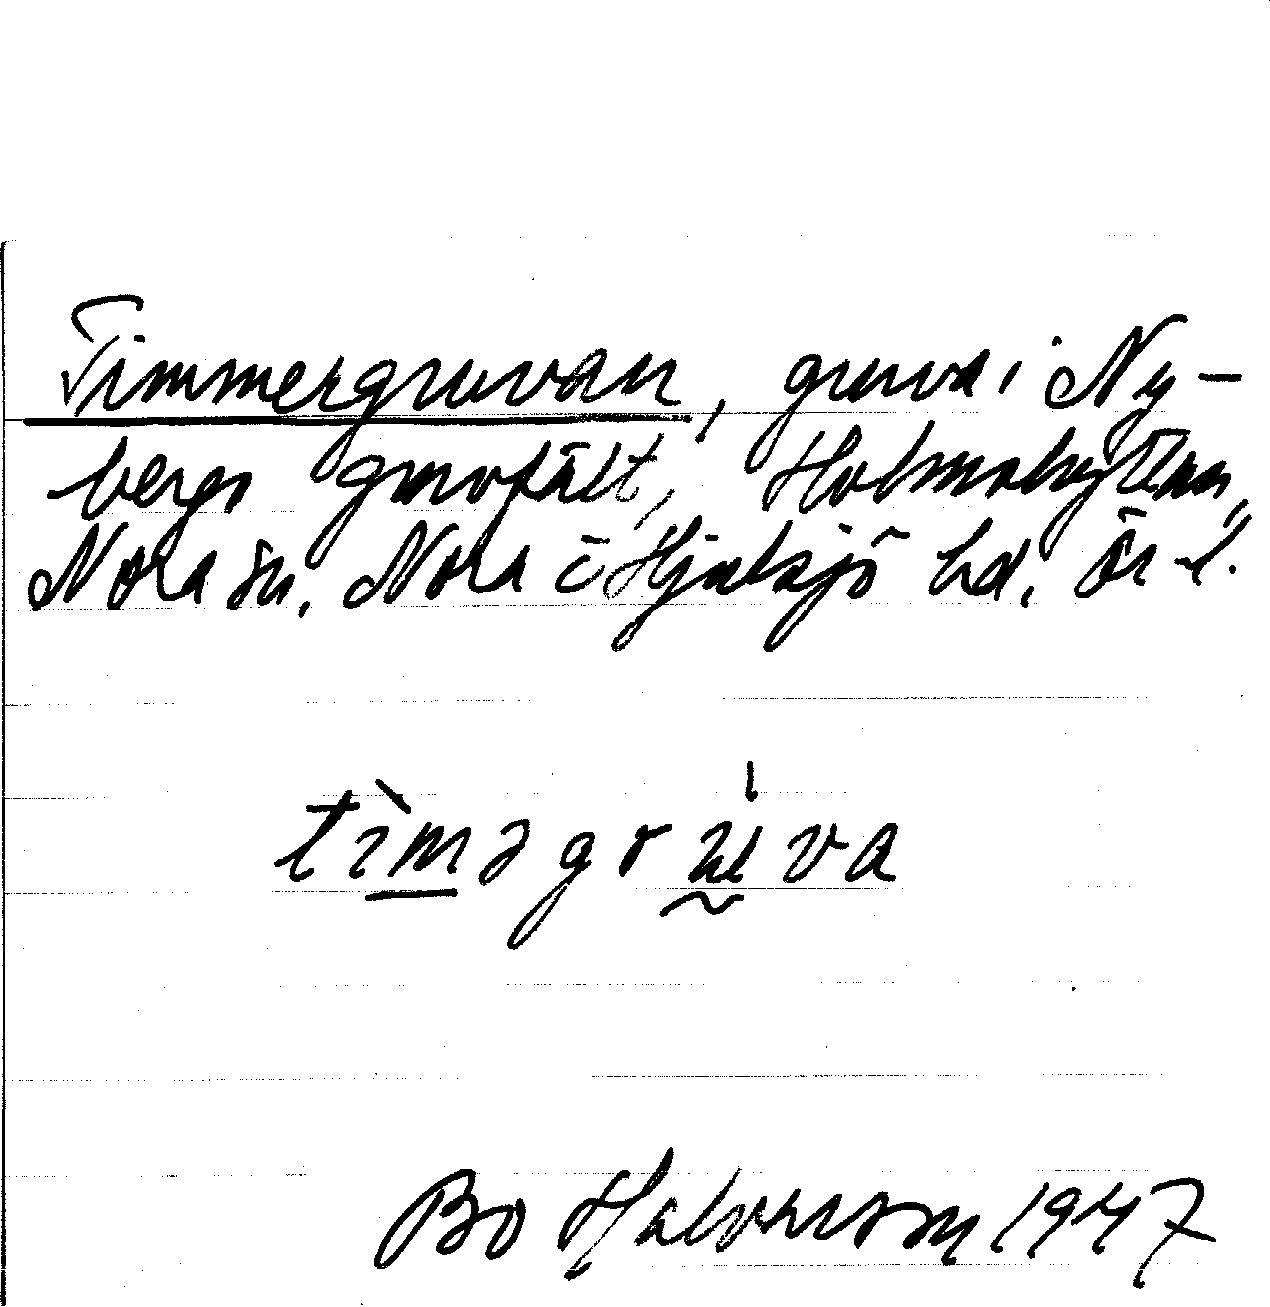 Timmergruvan, gruva i Ny-
bergs gruvfält, Holmshyttan,
Nora sn, Nora o Hjulsjö hd, Ör. l.
tìməgrúva
Bo Halvarsson 1947